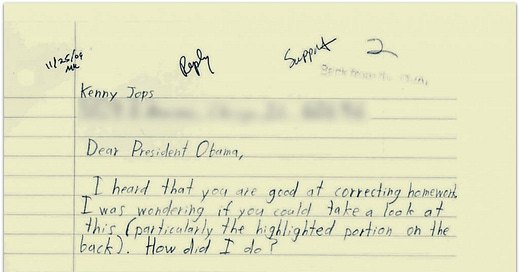 11/25/09
MR
Reply
Support
2
Back from the OVAL
Kenny Jops
Dear President Obama,
I heard that you are good at correcting homework.
I was wondering if you could take a look at
this (particularly the highlighted portion on the
back). How did I do?